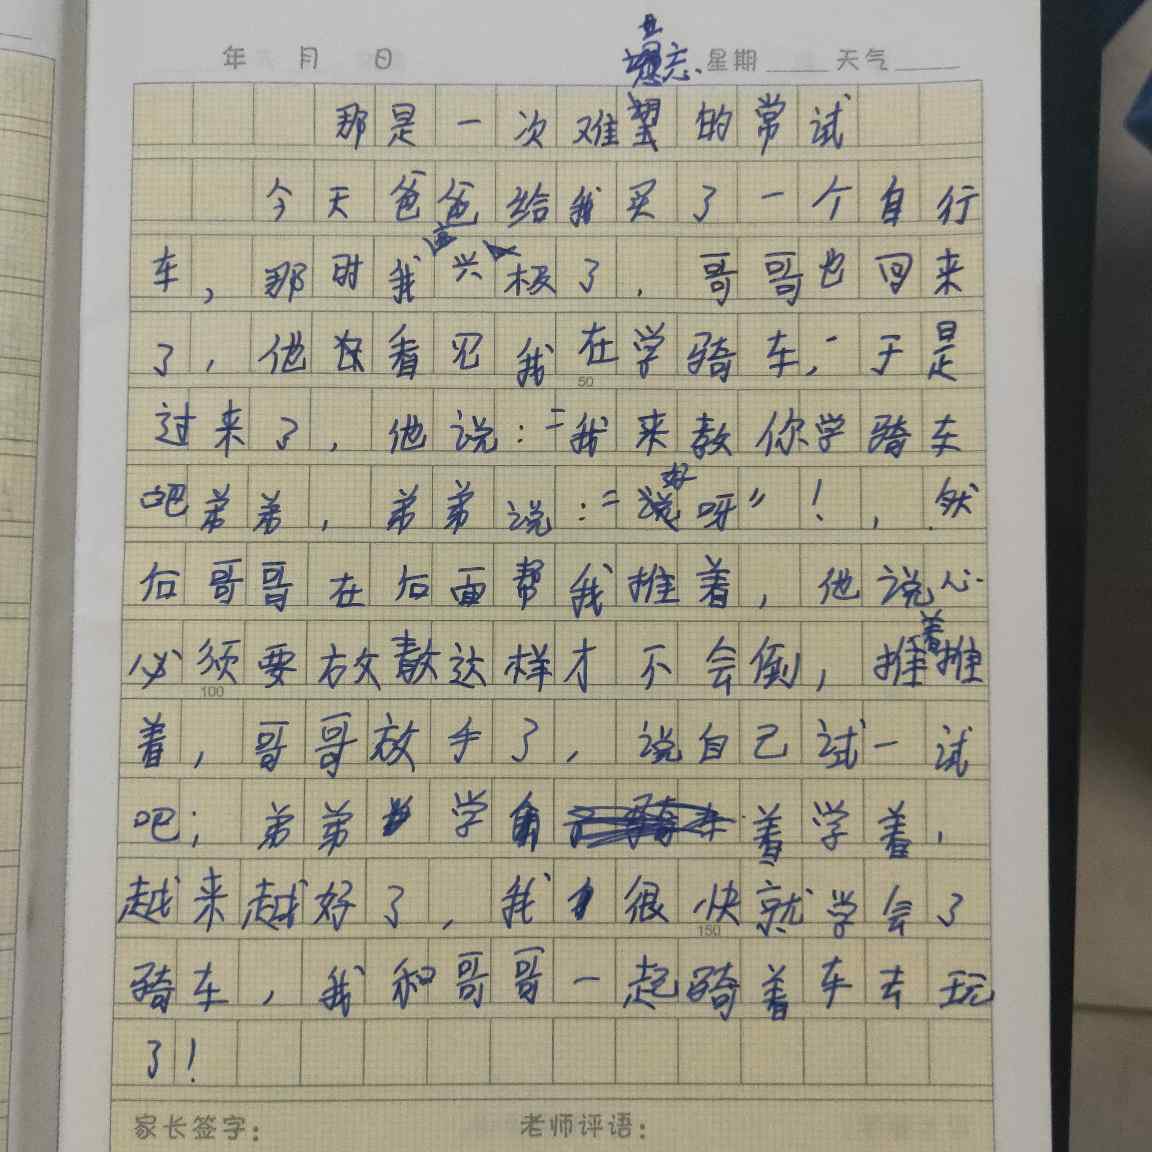 年 月 日 星期 天气
那是一次难望的常试
今天爸爸给我买了一个自行
车，那时我兴极了．哥哥也回来
了，他看见我在学骑车，于是
过来了，他说："我来教你学骑车
吧弟弟，弟弟说："好呀"！，然
后哥哥在后面帮我推着，他说心
必须要放敖这样才不会倒，推着推
着，哥哥放手了，说自己试一试
吧；弟弟学着学着，
越来越好了，我很快就学会了
骑车，我和哥哥一起骑着车去玩
了！
家长签字： 老师评语：